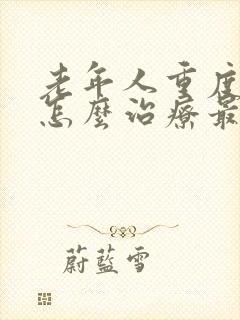 老年人重度
怎麼治療最
蔚藍雪